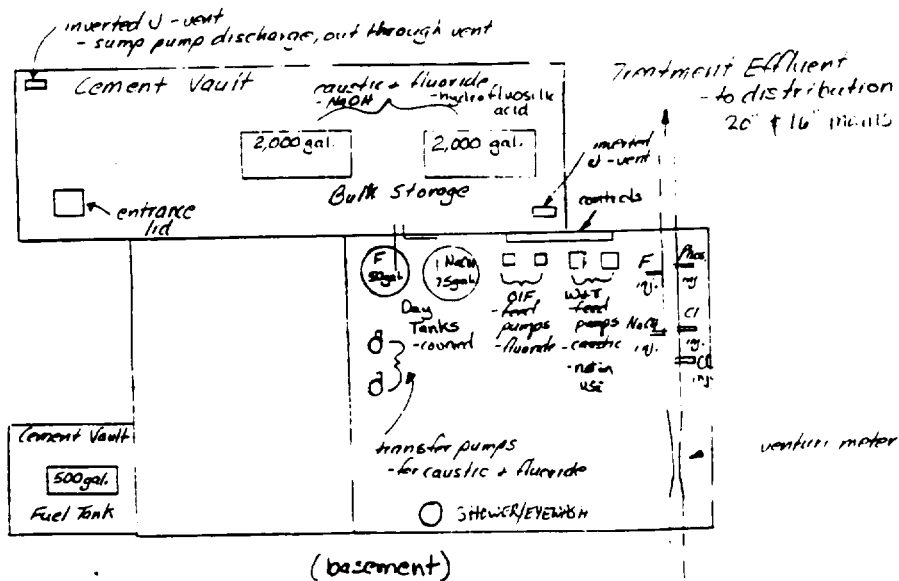 inverted J-vent
- sump pump discharge, out through vent
Cement Vault
caustic + fluoride
- NaOH
- hydrofluosilic
acid
2,000 gal.
2,000 gal.
Bulk Storage
entrance
lid
inverted
J-vent
controls
Treatment Effluent
- to distribution
20" & 16" mains
F
50gal.
NaOH
75gal.
Day
Tanks
- covered
feed
pumps
- fluoride
W&T
feed
pumps
- caustic
- not in
use
F
inj.
Phos.
inj.
NaOH
inj.
Cl
inj.
Cl
inj.
transfer pumps
- for caustic + fluoride
venturi meter
Cement Vault
500gal.
Fuel Tank
SHOWER/EYEWASH
(basement)